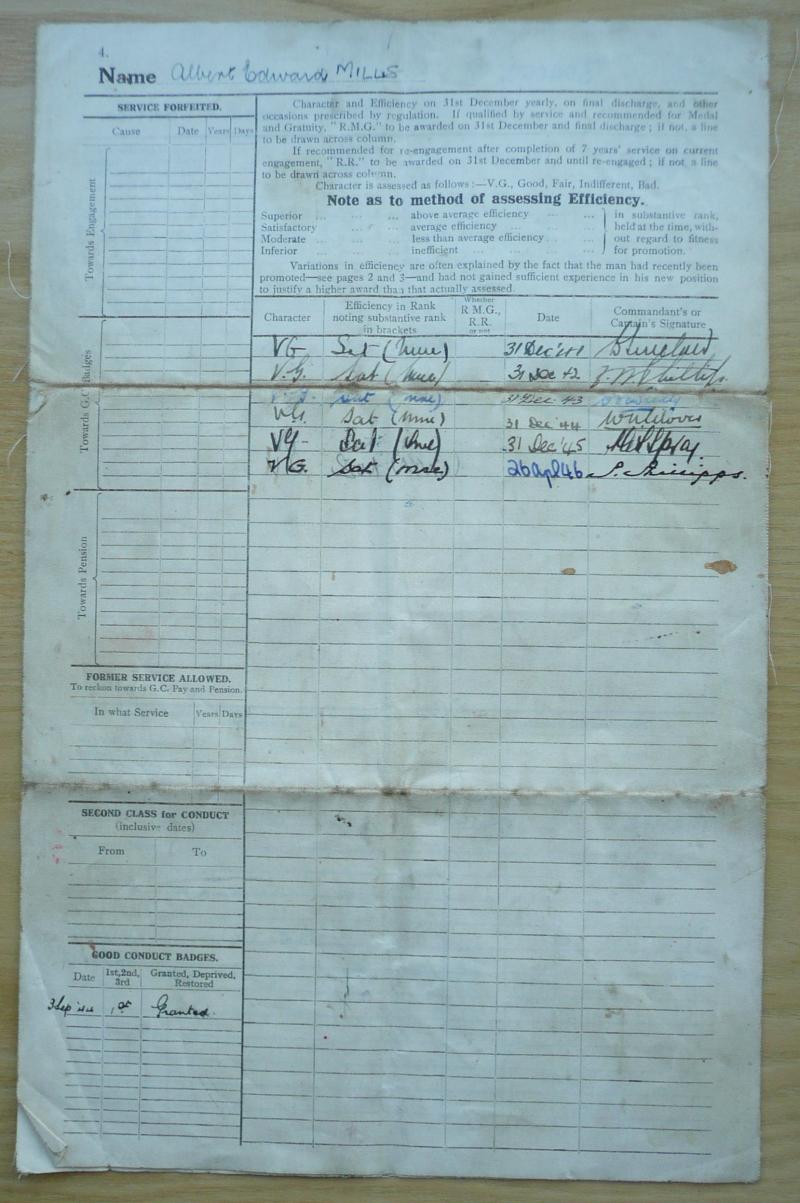 4.
Name Albert Edward MILLS
SERVICE FORFEITED.
Cause Date Years Days
Towards Engagement
Towards G.C. Badges
Towards Pension
FORMER SERVICE ALLOWED.
To reckon towards G.C. Pay and Pension.
In what Service Years Days
SECOND CLASS for CONDUCT
(inclusive dates)
From To
GOOD CONDUCT BADGES.
Date 1st, 2nd, 3rd Granted, Deprived, Restored
3 Sep '44 1st Granted.
Character and Efficiency on 31st December yearly, on final discharge, and other
occasions prescribed by regulation. If qualified by service and recommended for Medal
and Gratuity, "R.M.G." to be awarded on 31st December and final discharge; if not, a line
to be drawn across column.
If recommended for re-engagement after completion of 7 years' service on current
engagement, "R.R." to be awarded on 31st December and until re-engaged; if not a line
to be drawn across column.
Character is assessed as follows:—V.G., Good, Fair, Indifferent, Bad.
Note as to method of assessing Efficiency.
Superior ... ... ... above average efficiency ... ... in substantive rank,
Satisfactory ... ... average efficiency ... ... held at the time, with-
Moderate ... ... ... less than average efficiency ... ... out regard to fitness
Inferior ... ... ... inefficient ... ... ... for promotion.
Variations in efficiency are often explained by the fact that the man had recently been
promoted—see pages 2 and 3—and had not gained sufficient experience in his new position
to justify a higher award than that actually assessed.
Character
Efficiency in Rank
noting substantive rank
in brackets
Whether
R M.G.,
R.R.
or not
Date
Commandant's or
Captain's Signature
VG Sat (Mne) 31 Dec '41
V.G. Sat (Mne) 31 Dec 42
V.G. Sat (Mne) 31 Dec 43
VG. Sat (Mne) 31 Dec '44
VG- Sat (Mne) 31 Dec '45
VG. Sat (Mne) 26 Apl 46